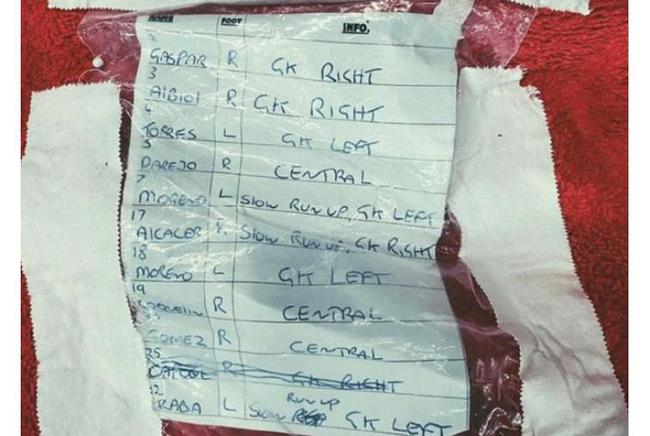 NAME FOOT INFO.
2
GASPAR R GK RIGHT
3
AlBIOl R GK RIGHT
4
TORRES L GK LEFT
5
PAREJO R CENTRAL
7
MORENO L SlOW RUN UP, GK LEFT
17
AlCACER SlOW RUN UP, GK RIGHT
18
MORENO L GK LEFT
19
R CENTRAL
GOMEZ R CENTRAL
25
R GK RIGHT
RUN UP
RABA L SlOW GK LEFT